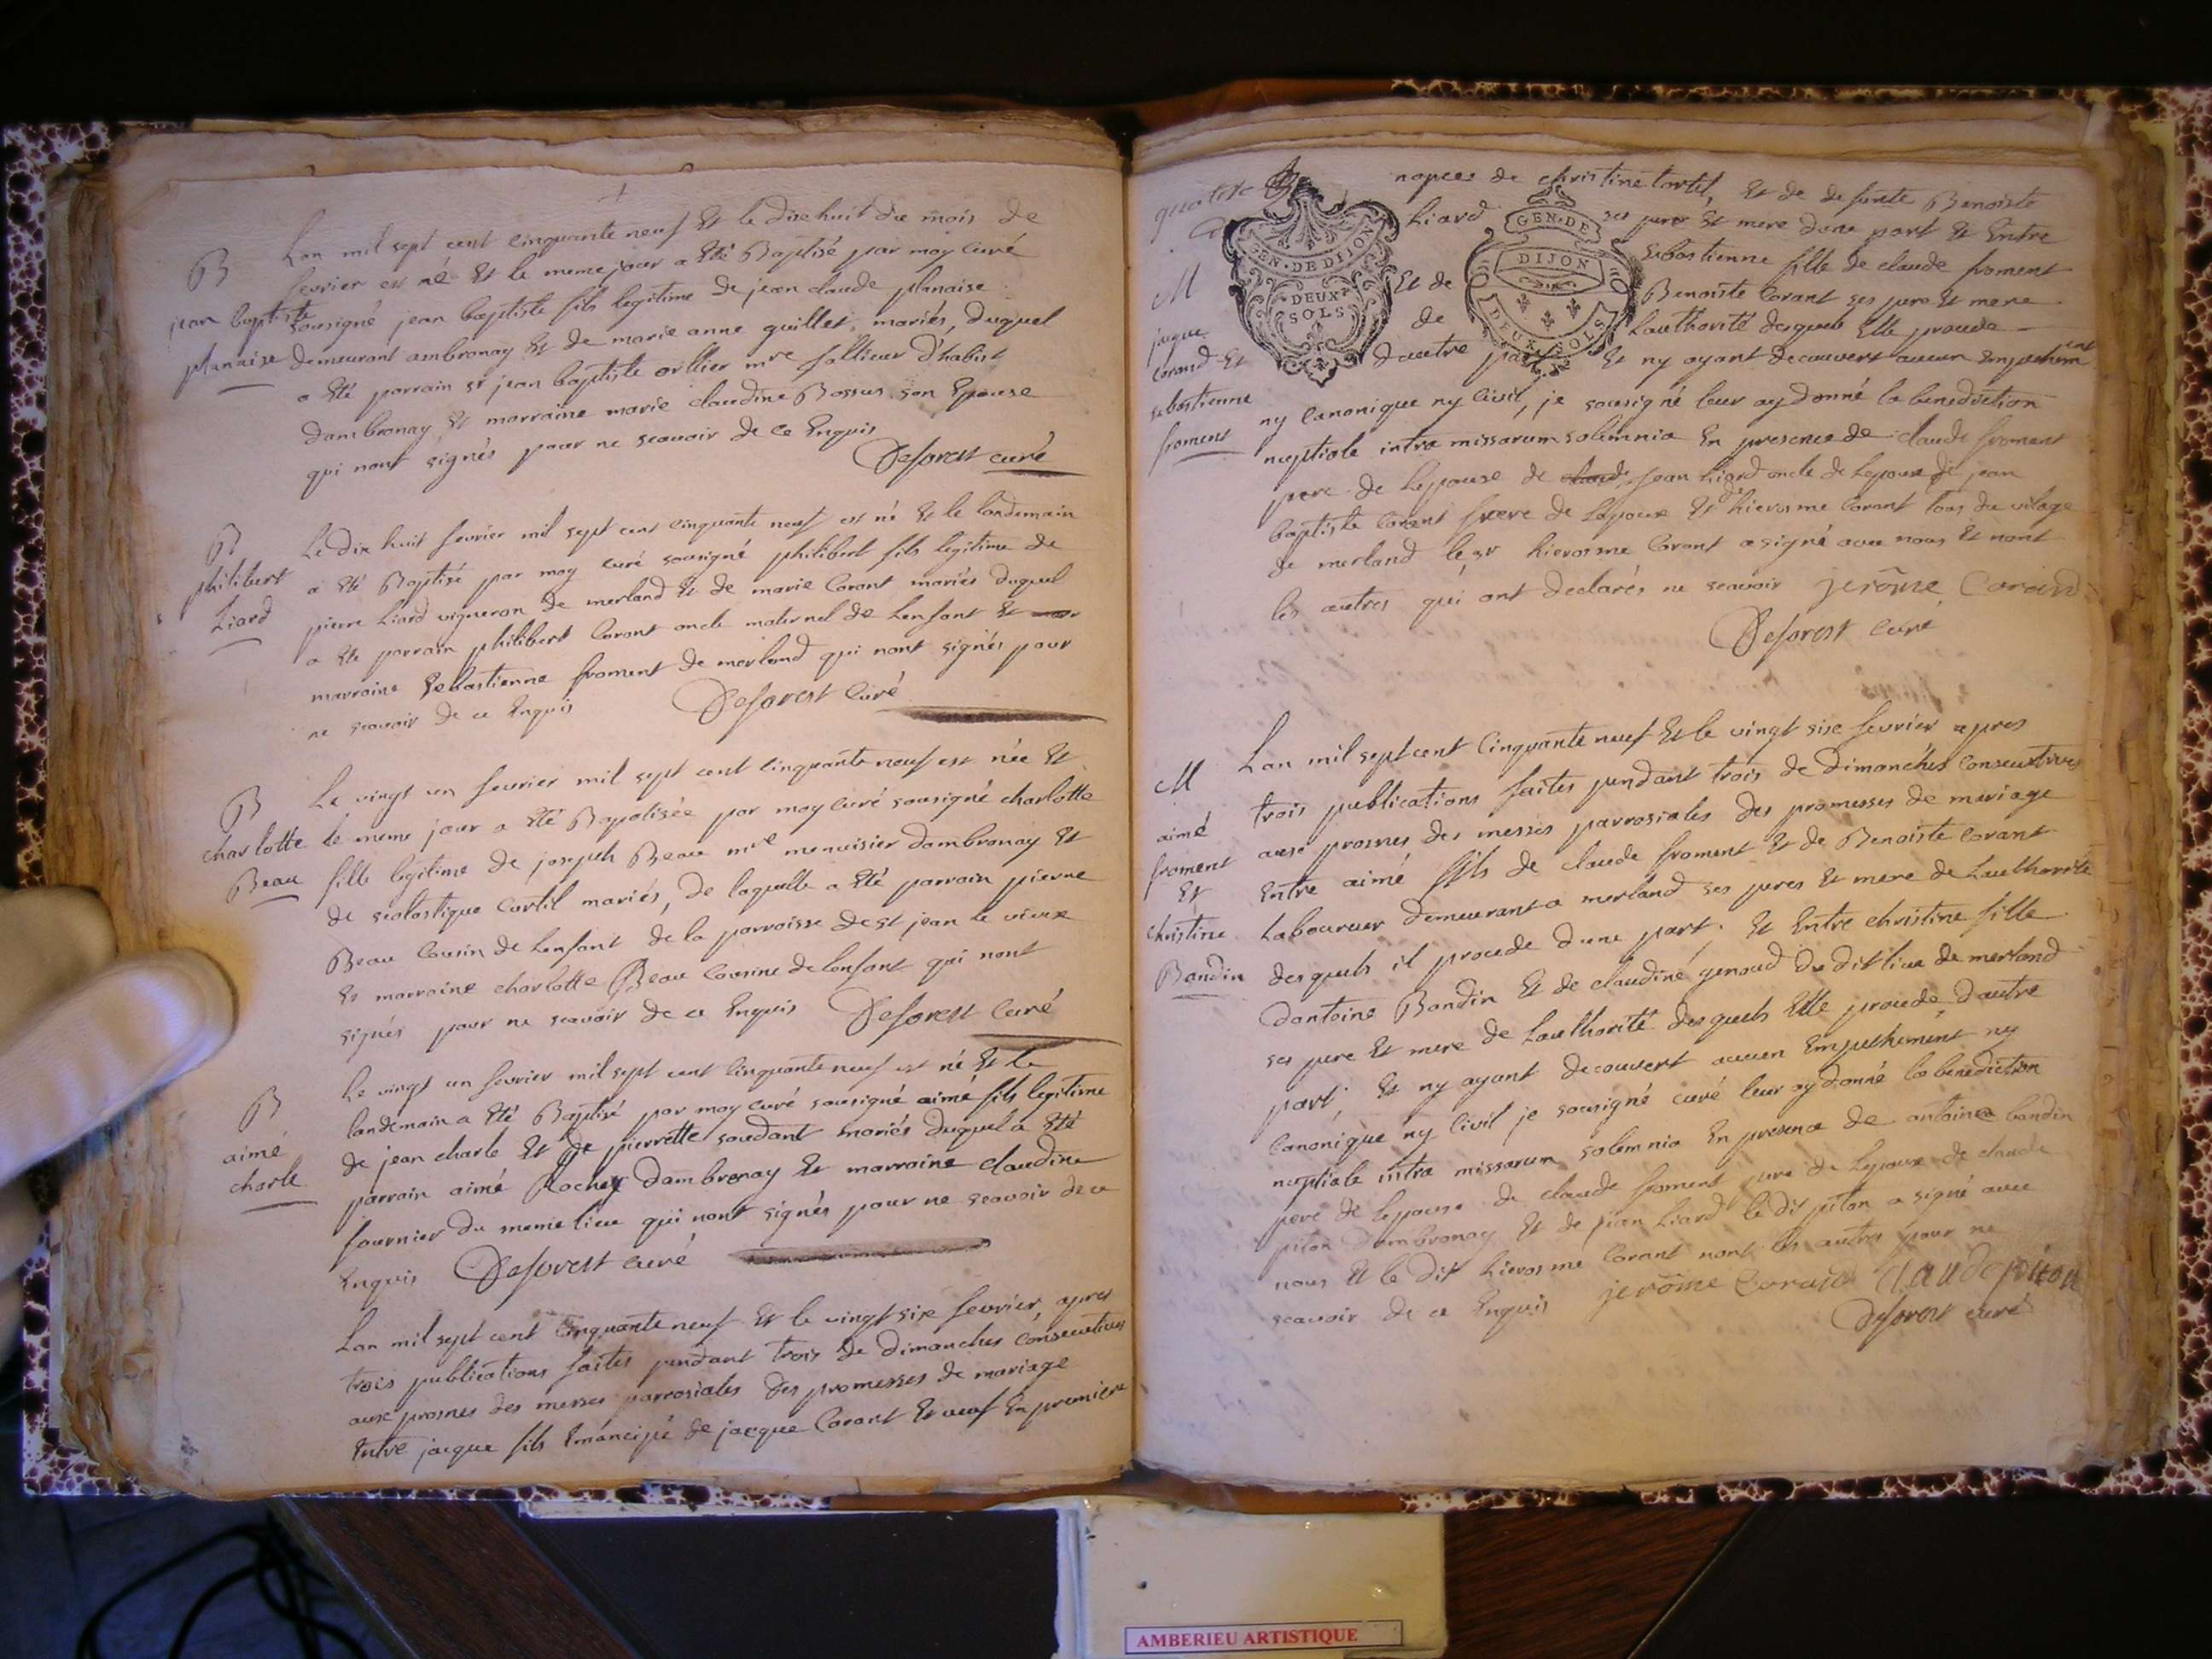 B
jean baptiste
planaise
Lan mil sept cent cinquante neuf Et le dixe huit du mois de
fevrier est né Et le meme jour a Eté Baptisé par moy curé
sousigné jean baptiste fils legitime de jean claude planaise
demeurant ambronay Et de marie anne guillet, mariés, duquel
a Eté parrain sr jean baptiste orllier mre tallieur d'habist
dambronay, Et marraine marie claudine Bossus son Epouse
qui nont signés pour ne scavoir de ce Enquis
Deforest curé
B
philibert
Liard
Le dix huit fevrier mil sept cent cinquante neuf est né Et le landemain
a Eté Baptisé par moy curé sousigné philibert fils legitime de
pierre Liard vigneron de merland Et de marie Corant mariés duquel
a Eté parrain philibert Corant oncle maternel de Lenfant Et mar
marraine Sebastienne froment de merland qui nont signés pour
ne scavoir de ce Enquis Deforest Curé
B
charlotte
Beau
Le vingt un fevrier mil sept cent cinquante neuf est née Et
le meme jour a Eté Bapatisée par moy curé sousigné charlotte
fille legitime de joseph Beau mre menuisier dambronay Et
de scolastique Cortil mariés, de laquelle a Eté parrain pierre
Beau Cousin de Lenfant de la parroisse de st jean le vieux
Et marraine charlotte Beau Cousine de lenfant qui nont
signés pour ne scavoir de ce Enquis Deforest Curé
B
aimé
charle
Le vingt un fevrier mil sept cent cinquante neuf est né Et le
landemain a Eté Baptisé par moy curé sousigné aimé fils legitime
de jean charle Et de pierrette soudant mariés duquel a Eté
parrain aimé Rochey dambronay Et marraine claudine
fournier du meme lieu qui nont signés pour ne scavoir de ce
Enquis Deforest curé
Lan mil sept cent Cinquante neuf Et le vingt sixe fevrier, apres
trois publications faites pendant trois de dimanches consecutives
auxe prosnes des messes parrosiales des promesses de mariage
Entre jacque fils Emancipé de jacque Corant Et veuf En premiere
quatre
GEN · DE DIJON
DEUX
SOLS
GEN · DE
DIJON
DEUX SOLS
M
jacque
Corand Et
sebastienne
froment
nopces de christine Cortil, Et de defunte Benoiste
Liard ses pere Et mere dune part Et Entre
sebastienne fille de claude froment
Et de Benoiste Corant ses pere Et mere
de Lauthorité desquels Elle procede
dautre part Et ny ayant decouvert aucun Empechement
ny Canonique ny Civil, je sousigné leur ay donné la benediction
nuptiale intra missarum solemnia En presence de claude froment
pere de Lepouse de claude jean Liard oncle de Lepoux de jean
baptiste Corant frere de Lepoux Et de hierosme Corant tous du vilage
de merland le sr hierosme Corant a signé avec nous Et nont
les autres qui ont declarés ne scavoir jerôme Corand
Deforest Curé
M
aimé
froment
Et
christine
Bandin
Lan mil sept cent Cinquante neuf Et le vingt sixe fevrier apres
trois publications faites pendant trois de dimanches consecutives
auxe prosnes des messes parrosiales des promesses de mariage
Entre aimé fils de claude froment Et de Benoiste Corant
Laboureur demeurant a merland ses peres Et mere de Lauthorité
desquels il procede dune part. Et Entre christine fille
dantoine Bandin Et de claudine genoud du dit lieu de merland
ses pere Et mere de Lauthorité desquels Elle procede dautre
part, Et ny ayant decouvert aucun Empechement ny
Canonique ny Civil je sousigné curé leur ay donné la benediction
nuptiale intra missarum solemnia En presence de antoine bandin
pere de Lepouse de claude froment pere de Lepoux de claude
piton dambronay Et de jean Liard le dit piton a signé avec
nous Et le dit hierosme Corant nont les autres pour ne
scavoir de ce Enquis jerôme Corand Claude piton
Deforest curé
AMBERIEU ARTISTIQUE